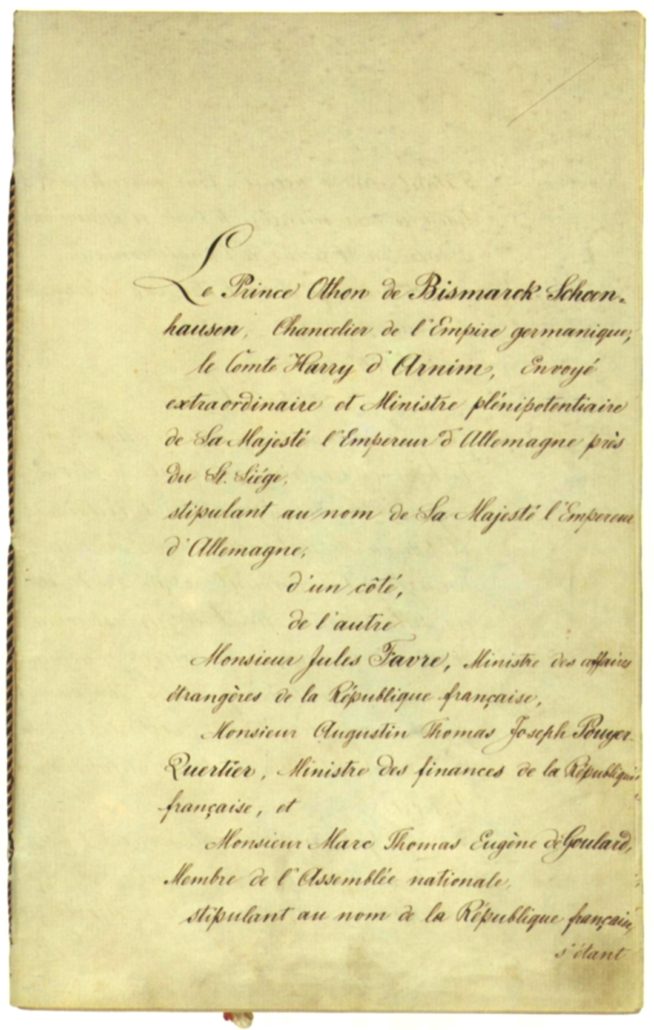 Le Prince Othon de Bismarck Schoen-
hausen, Chancelier de l'Empire germanique;
le Comte Harry d'Arnim, Envoyé
extraordinaire et Ministre plénipotentiaire
de Sa Majesté l'Empereur d'Allemagne près
du St. Siége,
stipulant au nom de Sa Majesté l'Empereur
d'Allemagne,
d'un côté,
de l'autre
Monsieur Jules Favre, Ministre des affaires
étrangères de la République française,
Monsieur Augustin Thomas Joseph Pouyer-
Quertier, Ministre des finances de la République
française, et
Monsieur Marc Thomas Eugène de Goulard,
Membre de l'Assemblée nationale,
stipulant au nom de la République française,
s'étant